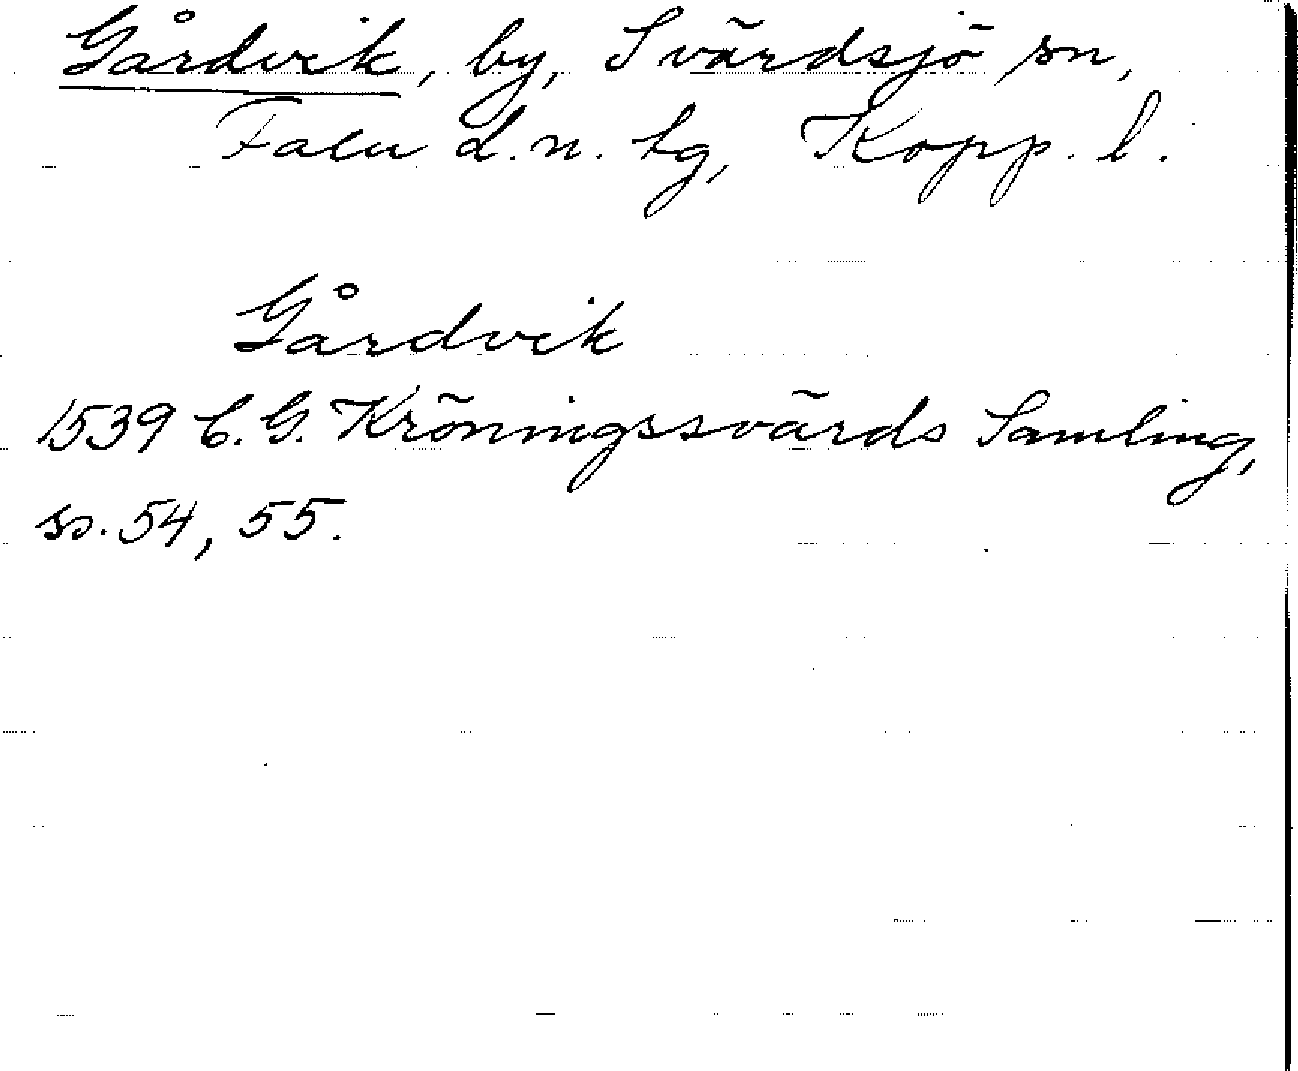 Gårdvik, by, Svärdsjö sn,
Falu d.n. tg, Kopp. l.
Gårdvik
1539 C. G. Kröningssvärds Samling,
ss. 54, 55.